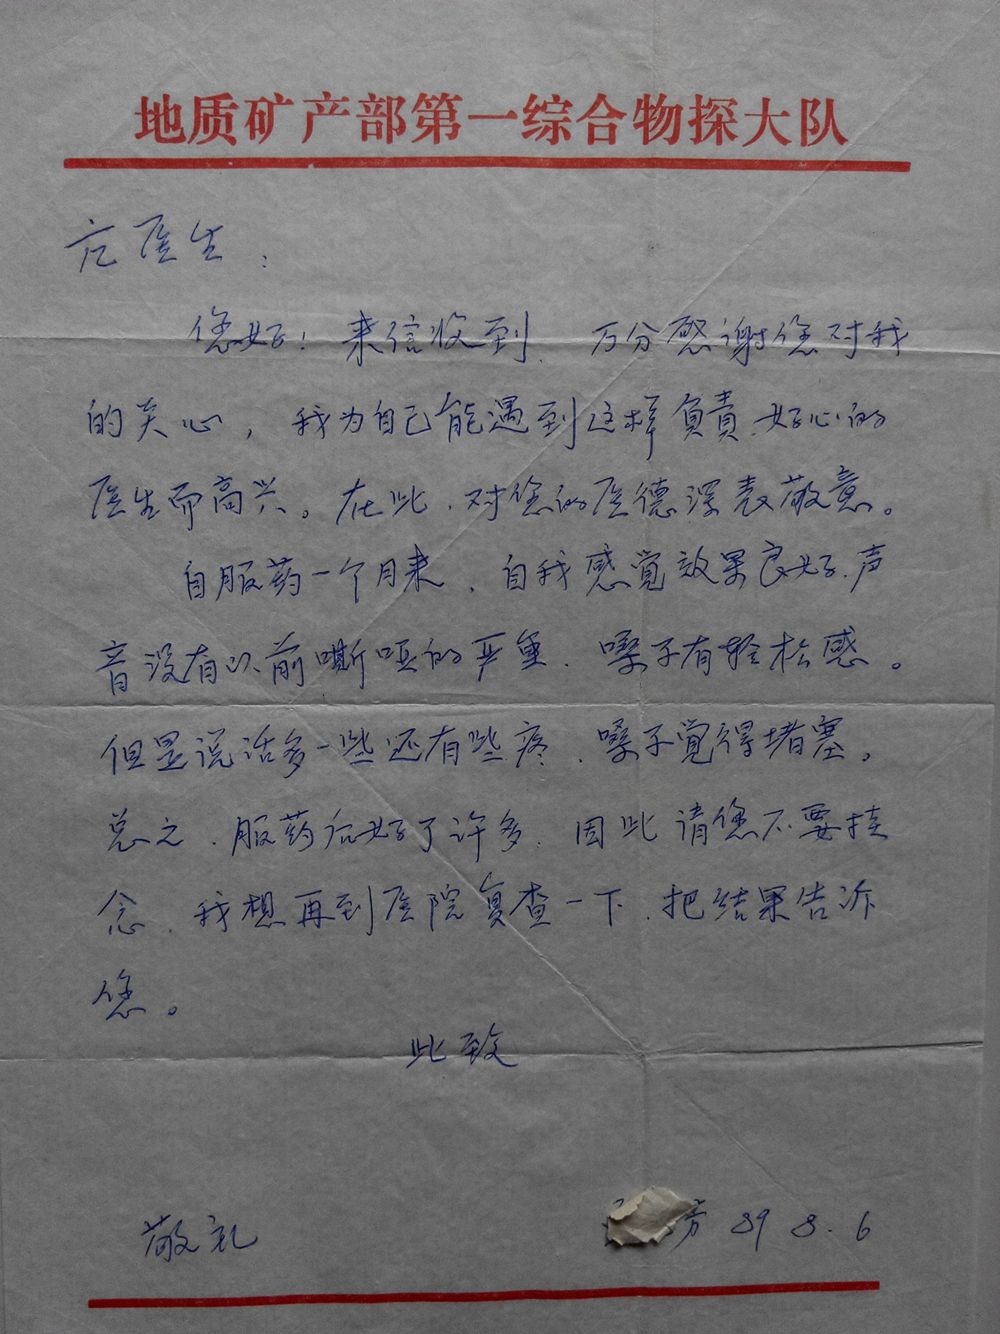 地质矿产部第一综合物探大队
医生：
您好！来信收到、万分感谢您对我
的关心，我为自己能遇到这样负责、好心的
医生而高兴。在此、对您的医德深表敬意。
自服药一个月来、自我感觉效果良好、声
音没有以前嘶哑的严重、嗓子有轻松感。
但是说话多一些还有些疼、嗓子觉得堵塞。
总之、服药后好了许多、因此请您不要挂
念、我想再到医院复查一下、把结果告诉
您。
此致
敬礼
芳 89 8.6